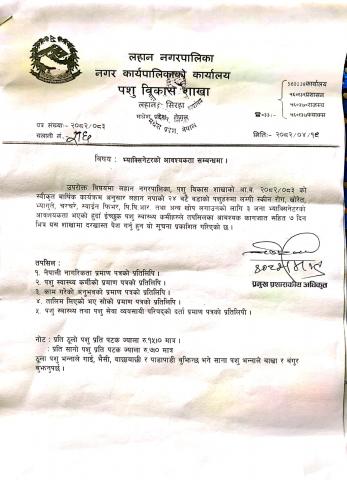 लहान नगरपालिका
नगर कार्यपालिकाको कार्यालय
पशु विकास शाखा
लहान, सिरहा
मधेश प्रदेश, नेपाल
कार्यालय
प्रशासन
राजस्व
पत्र संख्याः- २०८२/०८३
चलानी नं.
मितिः- २०८२/०४/१९
विषय : भ्याक्सिनेटरको आवश्यकता सम्बन्धमा।
उपरोक्त विषयमा लहान नगरपालिका, पशु विकास शाखाको आ.व. २०८२/०८३ को
स्वीकृत बार्षिक कार्यक्रम अनुसार लहान नपाको २४ वटै वडाको पशुहरुमा लम्पी स्कीन रोग, खोरेत,
भ्यागुते, चरचरे, स्वाईन फिभर, पि.पि.आर. तथा अन्य खोप लगाउनको लागि ३ जना भ्याक्सिनेटरको
आवश्यकता भएको हुदाँ ईच्छुक पशु स्वास्थ्य कर्मीहरुले तपसिलका आवश्यक कागजात सहित ७ दिन
भित्र यस शाखामा दरखास्त पेश गर्नु हुन यो सूचना प्रकाशित गरिएको छ।
प्रमुख प्रशासकीय अधिकृत
तपसिल :
१. नेपाली नागरिकता प्रमाण पत्रको प्रतिलिपि।
२. पशु स्वास्थ्य कर्मीको प्रमाण पत्रको प्रतिलिपि।
३. काम गरेको अनुभवको प्रमाण पत्रको प्रतिलिपि।
४. तालिम लिएको भए सोको प्रमाण पत्रको प्रतिलिपि।
५. पशु स्वास्थ्य तथा पशु सेवा व्यवसायी परिषदको दर्ता प्रमाण पत्रको प्रतिलिपी।
नोट : प्रति ठूलो पशु प्रति पटक ज्याला रु.१५।० मात्र।
: प्रति सानो पशु प्रति पटक ज्याला रु.७।० मात्र
ठूला पशु भन्नाले गाई, भैसी, बाछाबाछी र पाडापाडी बुझिन्छ भने साना पशु भन्नाले बाख्रा र बंगुर
बुझ्नुपर्छ।